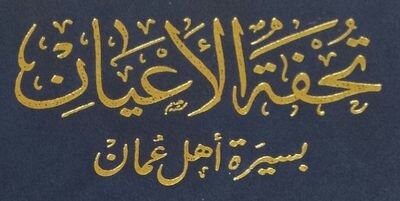 تُحْفَةُ الأَعْيَانِ
بسيرَة أهل عُمان